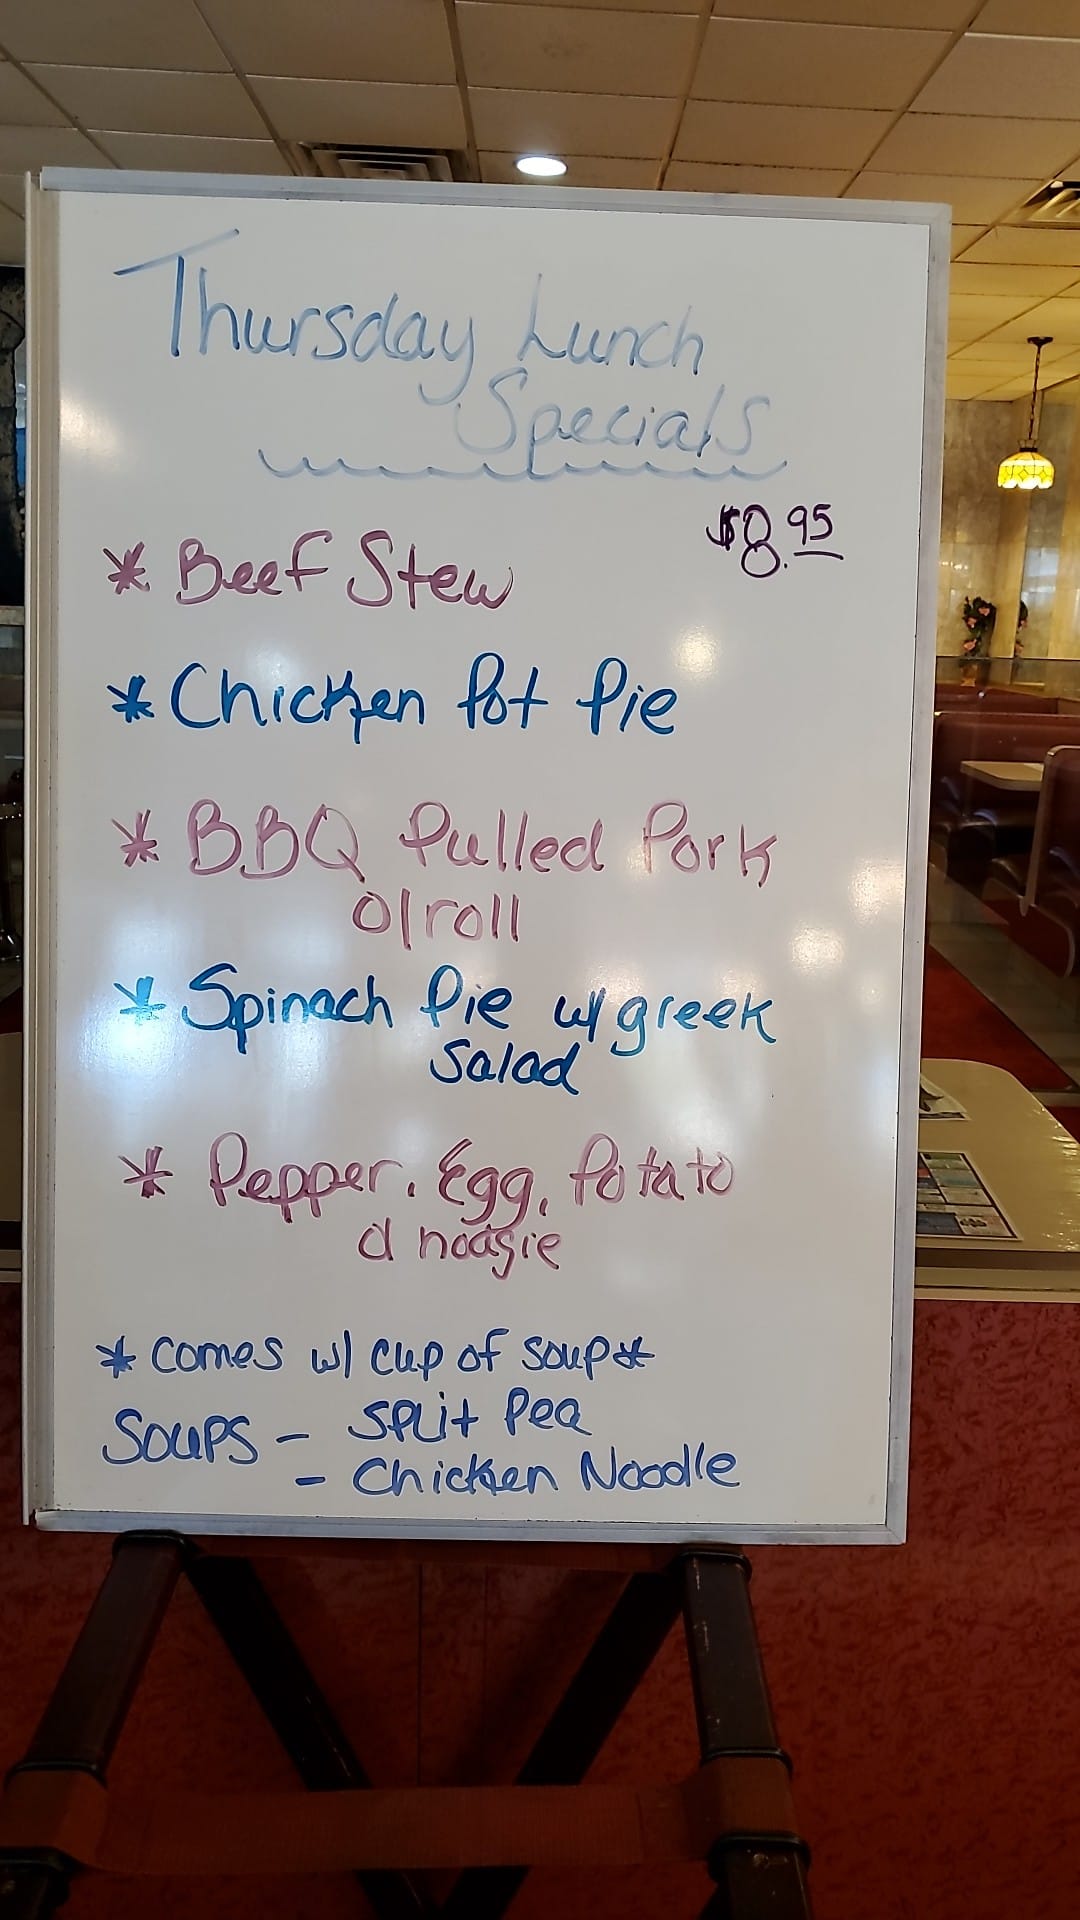 Thursday Lunch
Specials
$8.95
* Beef Stew
* Chicken Pot Pie
* BBQ Pulled Pork
o/roll
* Spinach Pie w/ greek
salad
* Pepper, Egg, Potato
hoagie
* comes w/ cup of soup *
SOUPS - Split Pea
- Chicken Noodle